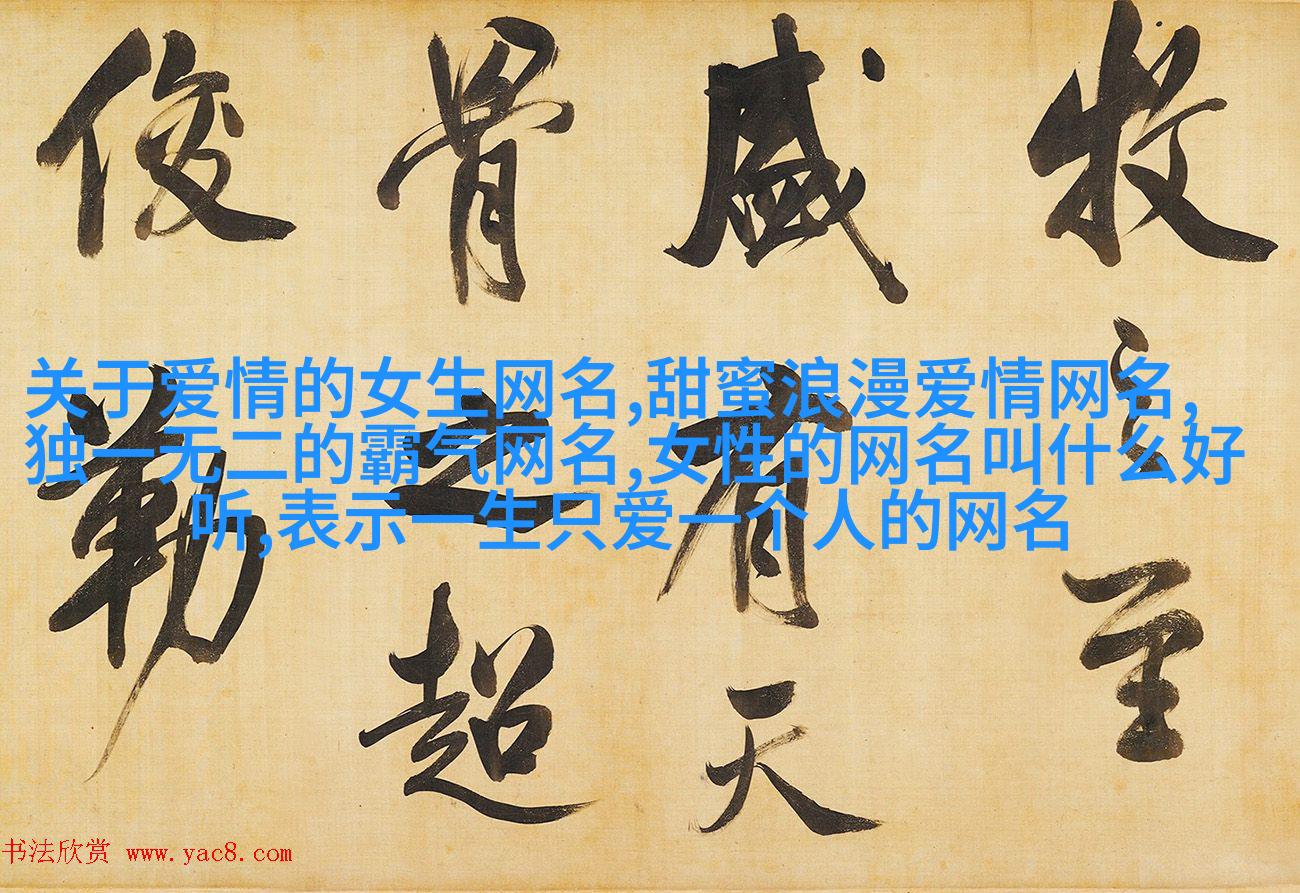 牧之至
盛有天
骨之超
俊勒
关于爱情的女生网名,甜蜜浪漫爱情网名,
独一无二的霸气网名,女性的网名叫什么好
听,表示一生只爱一个人的网名
书法欣赏 www.yac8.com